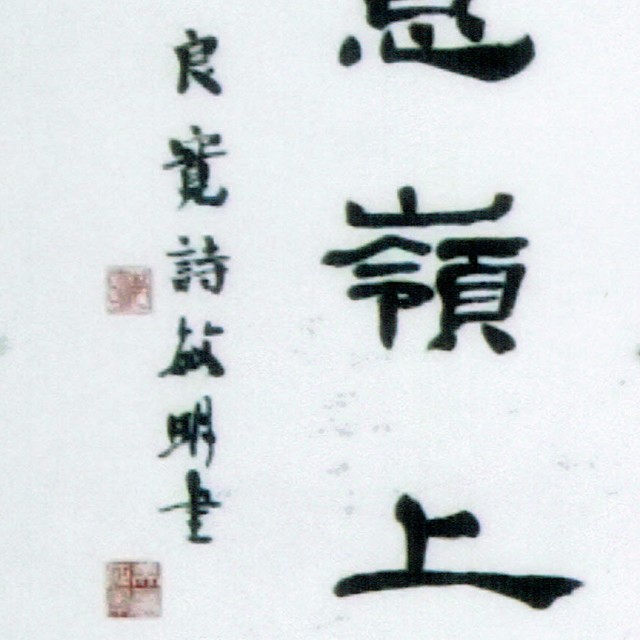 嶺上
良寛詩明書